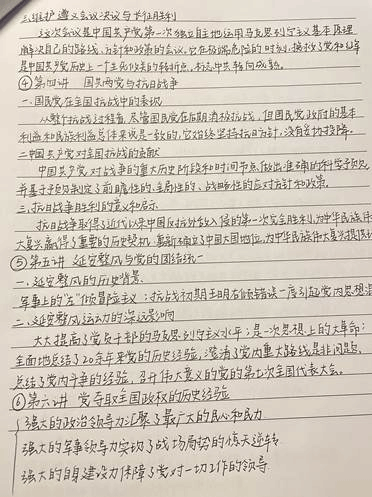 三、维护遵义会议决议与长征胜利
这次会议是中国共产党第一次独立自主地运用马克思列宁主义基本原理
解决自己的路线、方针和政策的会议，它在极端危险的时刻，挽救了党和红军
是中国共产党历史上一个生死攸关的转折点，标志中共转向成熟。
④第四讲 国共两党与抗日战争
一、国民党在全国抗战中的表现
从整个抗战过程看，尽管国民党在后期消极抗战，但国民党政府的基本
利益和民族利益总体来说是一致的，它始终坚持抗日方针，没有妥协投降。
二、中国共产党对全国抗战的贡献
中国共产党对战争的重大历史阶段和时间节点做出准确的科学预见
并基于预见制定了前瞻性的、全局性的、战略性的应对方针和政策。
三、抗日战争胜利的意义和启示
抗日战争取得了近代以来中国反抗外敌入侵的第一次完全胜利，为中华民族伟
大复兴赢得了重要的历史契机，重新确立了中国大国地位，为中华民族伟大复兴提供
⑤第五讲 延安整风与党的团结统一
一、延安整风的历史背景
军事上的“左”倾冒险主义；抗战初期王明右倾错误一度引起党内思想混
二、延安整风运动的深远影响
大大提高了党员干部的马克思列宁主义水平；是一次思想上的大革命；
全面地总结了20余年来党的历史经验，澄清了党内重大路线是非问题，
总结了党内斗争的经验，召开伟大意义的党的第七次全国代表大会。
⑥第六讲 党夺取全国政权的历史经验
强大的政治领导力汇聚了最广大的民心和民力
强大的军事领导力实现了战场局势的惊天逆转
强大的自身建设力保障了党对一切工作的领导